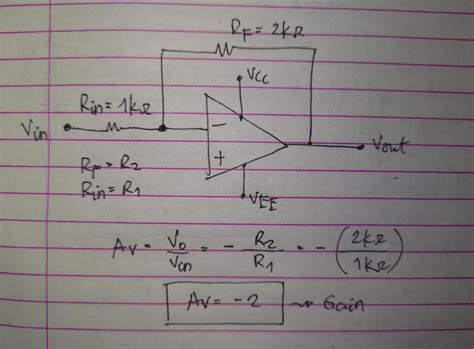 RF = 2kΩ
Vcc
Rin = 1kΩ
Vin
−
+
Vout
RF = R2
Rin = R1
VEE
Av = Vo/Von = − R2/R1 = − (2kΩ/1kΩ)
Av = −2 → Gain